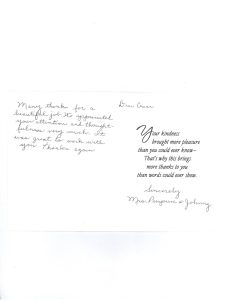 Many thanks for a
beautiful job. We appreciated
your attention and thought-
fulness very much. It
was great to work with
you. Thanks again
Dear
Your kindness
brought more pleasure
than you could ever know—
That's why this brings
more thanks to you
than words could ever show.
Sincerely
Mrs. & Johnny